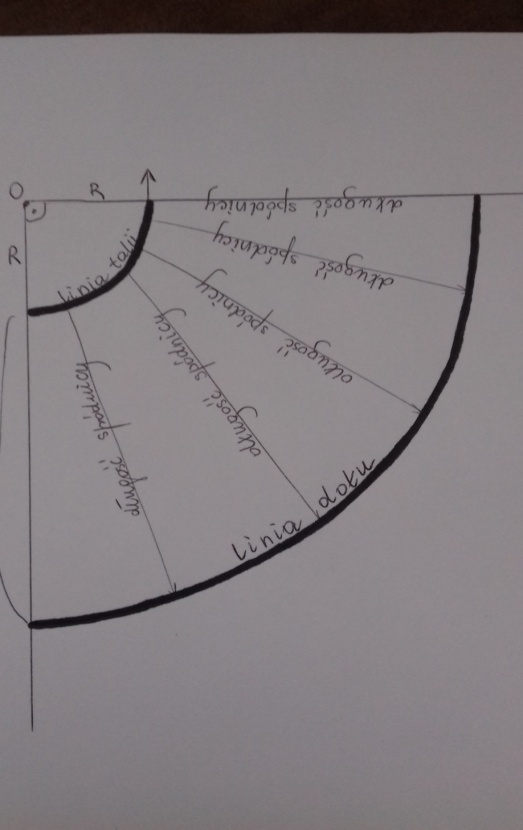 O
R
R
linia talii
długość spódnicy
długość spódnicy
długość spódnicy
długość spódnicy
długość spódnicy
linia doku